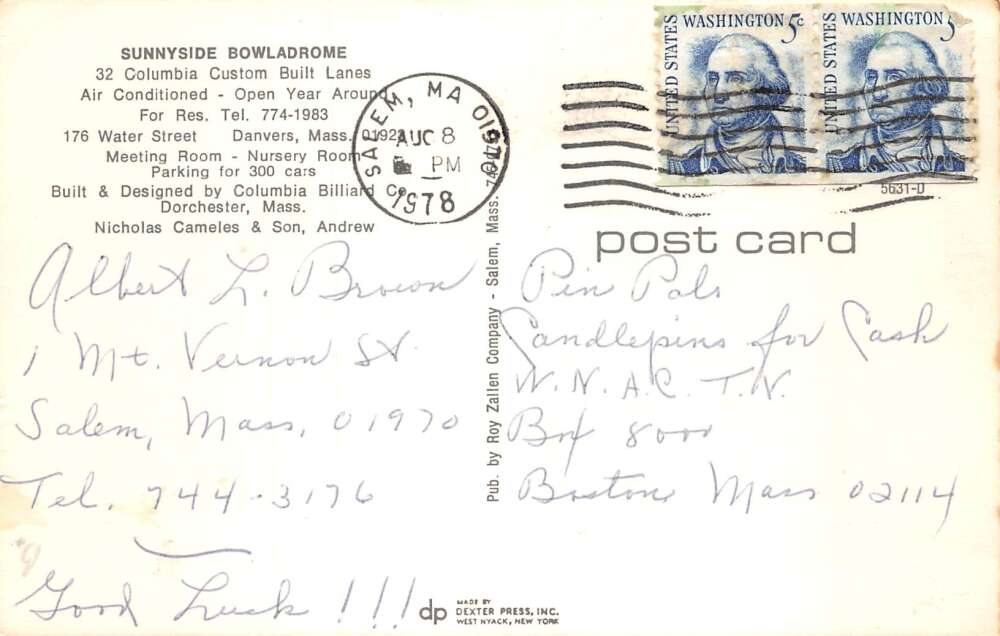 SUNNYSIDE BOWLADROME
32 Columbia Custom Built Lanes
Air Conditioned - Open Year Around
For Res. Tel. 774-1983
176 Water Street Danvers, Mass. 01923
Meeting Room - Nursery Room
Parking for 300 cars
Built & Designed by Columbia Billiard Co.
Dorchester, Mass.
Nicholas Cameles & Son, Andrew
Albert L. Brown
1 Mt. Vernon St.
Salem, Mass, 01970
Tel. 744-3176
Good Luck !!!
dp
MADE BY
DEXTER PRESS, INC.
WEST NYACK, NEW YORK
Pub. by Roy Zalten Company - Salem, Mass.
SALEM, MA 019
AUG 8
PM
1978
UNITED STATES
WASHINGTON 5c
UNITED STATES
WASHINGTON 5
5631-D
post card
Pin Pals
Candlepins for Cash
W.N.A.C. T.V.
Box 8000
Boston Mass 02114